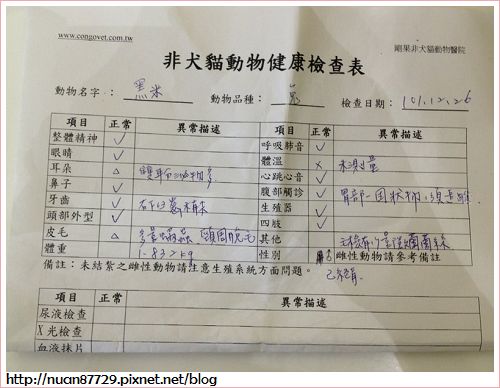 www.congovet.com.tw
剛果非犬貓動物醫院
非犬貓動物健康檢查表
動物名字： 黑米 動物品種： 兔 檢查日期： 101.12.26
項目 正常 異常描述 項目 正常 異常描述
整體精神 ✓ 呼吸肺音 ✓
眼睛 ✓ 體溫 × 未測量
耳朵 △ 雙耳分泌物多 心跳心音 ✓
鼻子 ✓ 腹部觸診 ✓ 胃部一團狀物
牙齒 ✓ 生殖器 ✓
頭部外型 ✓ 四肢 ✓
皮毛 △ 頸圍脫毛 其他
體重 1.83kg 性別 雌性動物請參考備註
備註：未結紮之雌性動物請注意生殖系統方面問題。
項目 正常 異常描述
尿液檢查
X光檢查
血液抹片
http://nuan87729.pixnet.net/blog